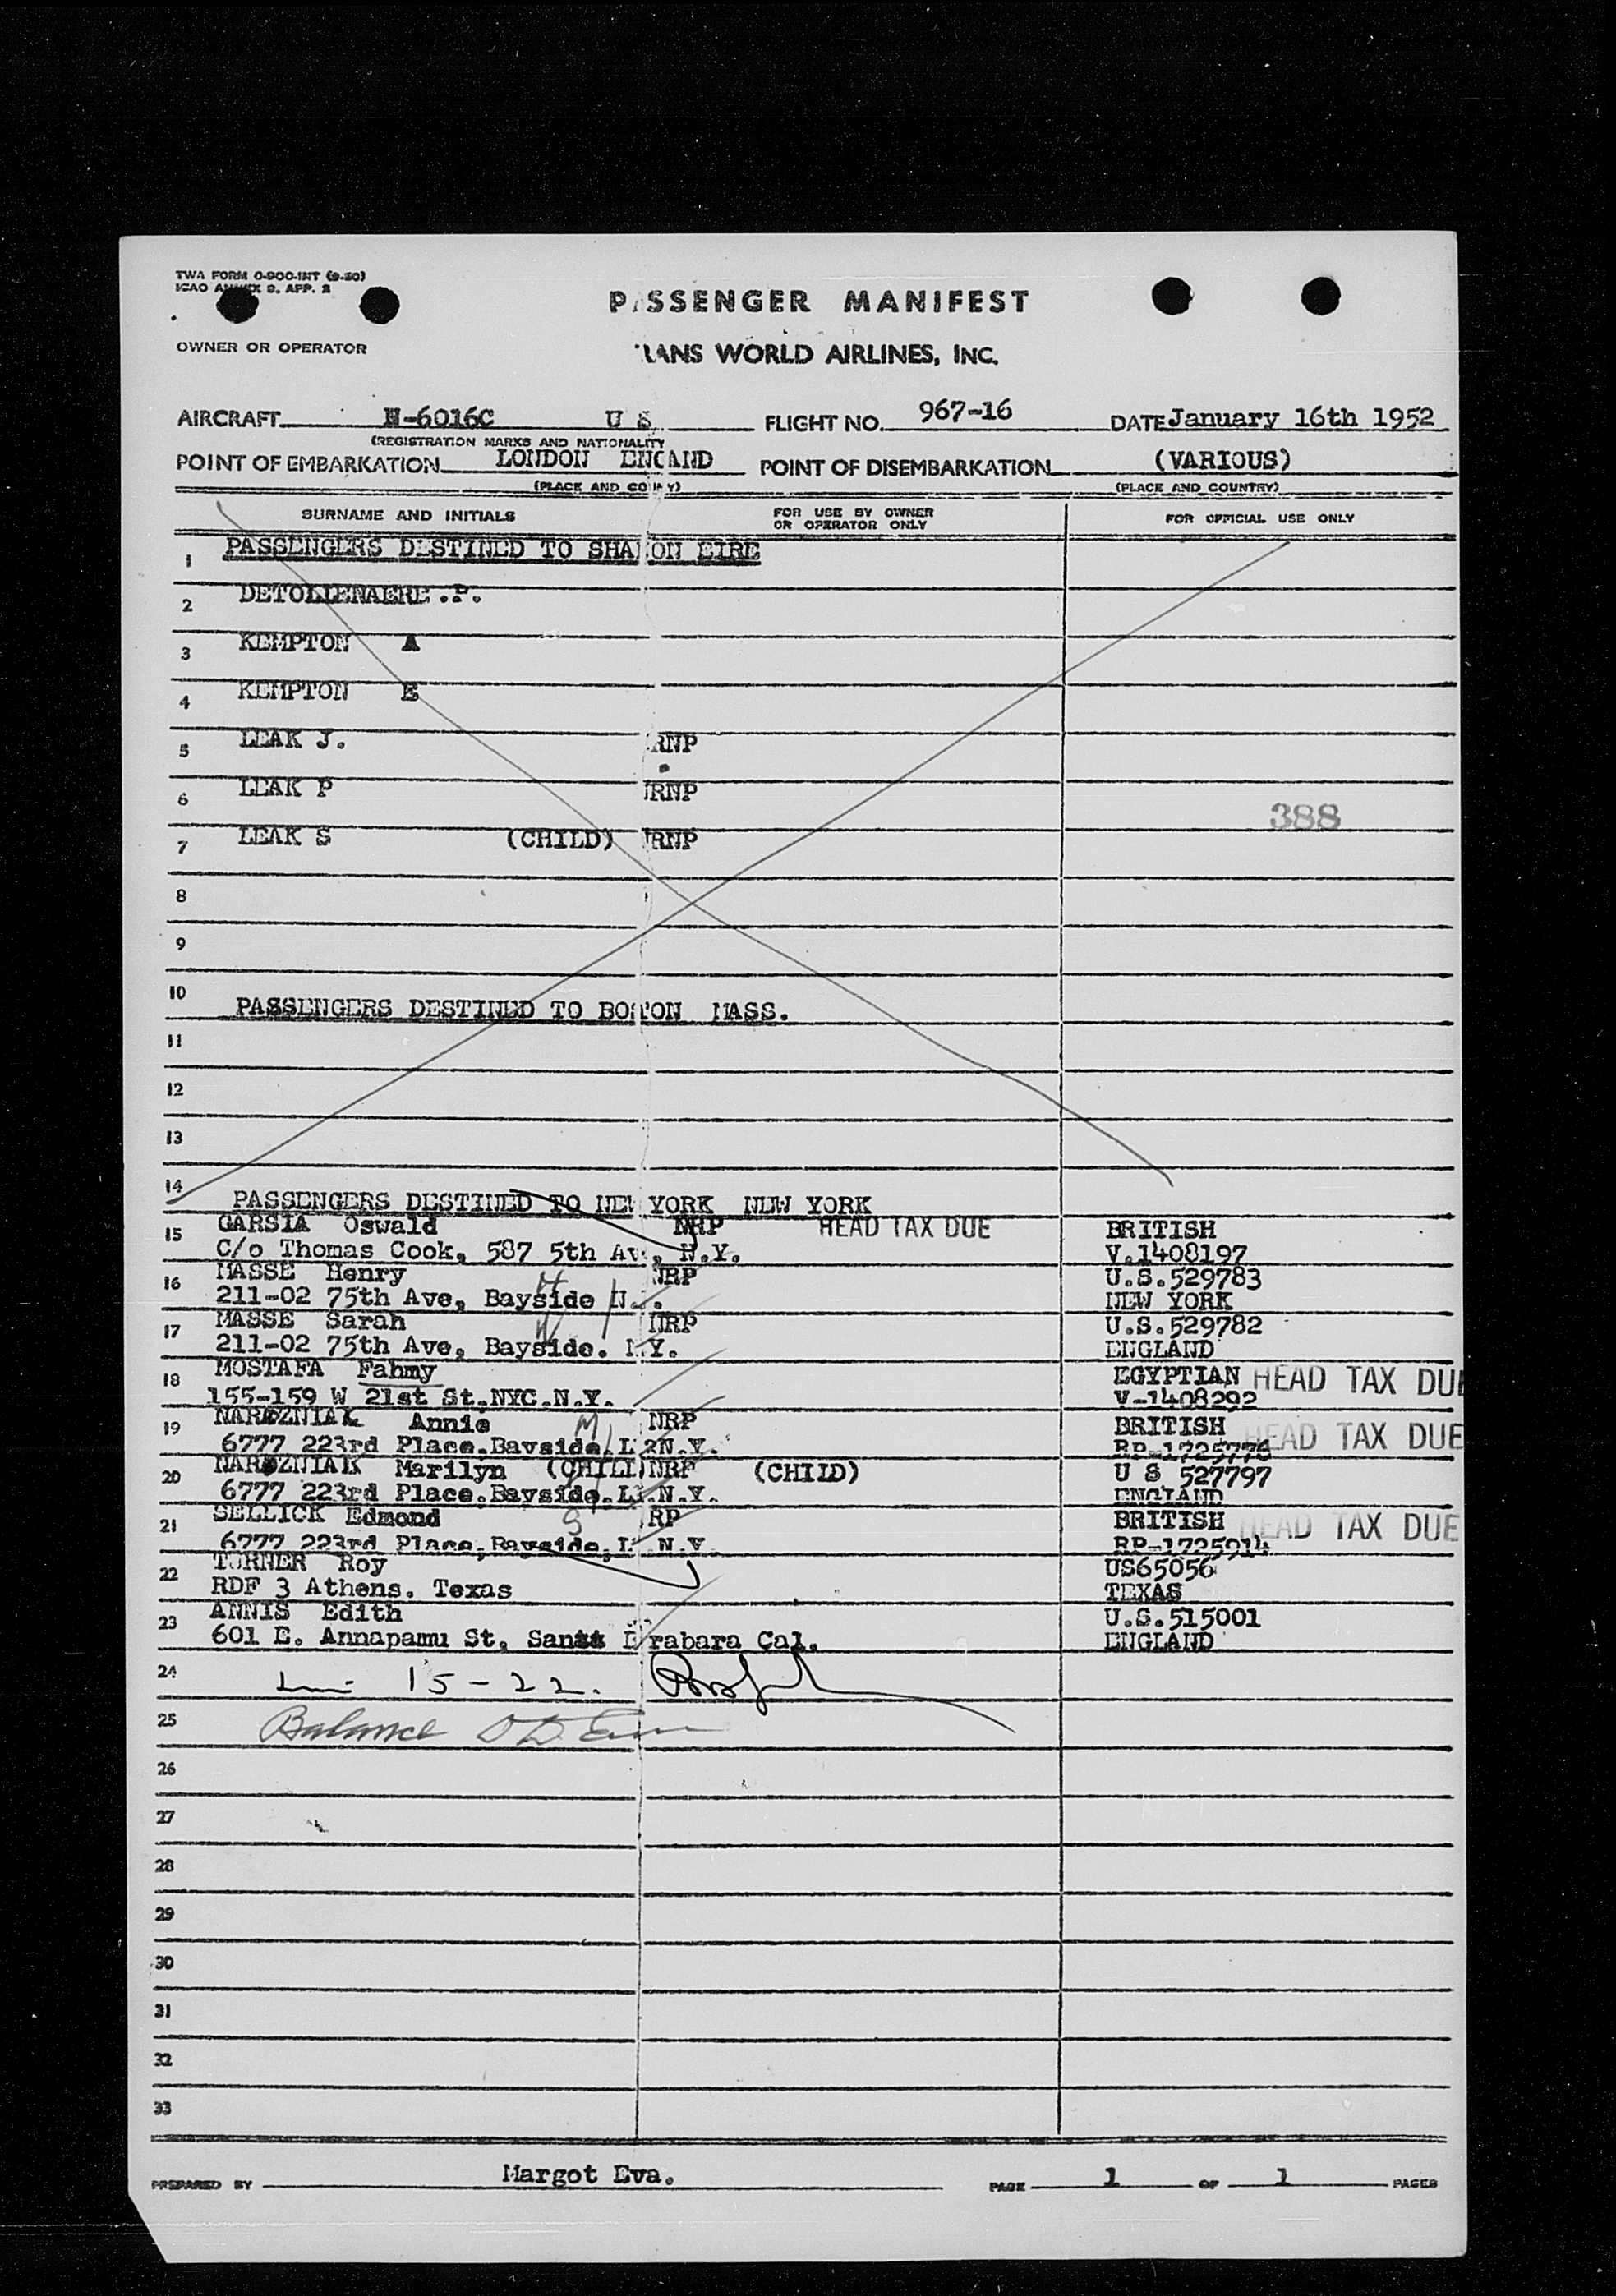 TWA FORM O-900-INT (9-50)
ICAO ANNEX 9. APP. 2
PASSENGER MANIFEST
OWNER OR OPERATOR
RANS WORLD AIRLINES, INC.
AIRCRAFT N-6016C U S FLIGHT NO. 967-16 DATE January 16th 1952
(REGISTRATION MARKS AND NATIONALITY
POINT OF EMBARKATION LONDON ENGAND POINT OF DISEMBARKATION (VARIOUS)
(PLACE AND COUNTRY) (PLACE AND COUNTRY)
SURNAME AND INITIALS FOR USE BY OWNER OR OPERATOR ONLY FOR OFFICIAL USE ONLY
1 PASSENGERS DESTINED TO SHANNON EIRE
2 DETOLLENAERE .P.
3 KEMPTON A
4 KEMPTON E
5 LEAK J. RNP
6 LEAK P RNP
388
7 LEAK S (CHILD) RNP
8
9
10 PASSENGERS DESTINED TO BOSTON MASS.
11
12
13
14 PASSENGERS DESTINED TO NEW YORK NEW YORK
15 GARSIA Oswald NRP HEAD TAX DUE BRITISH
C/o Thomas Cook, 587 5th Av, N.Y. V.1408197
16 MASSE Henry H NRP U.S.529783
211-02 75th Ave, Bayside N. . NEW YORK
17 MASSE Sarah W NRP U.S.529782
211-02 75th Ave, Bayside. N.Y. ENGLAND
18 MOSTAFA Fahmy EGYPTIAN HEAD TAX DUE
155-159 W 21st St.NYC.N.Y. V-1408292
19 NAROZNIAK Annie M NRP BRITISH HEAD TAX DUE
6777 223rd Place.Bayside.L N.Y. RP-1725776
20 NAROZNIAK Marilyn (CHILD)NRP (CHILD) U S 527797
6777 223rd Place.Bayside.LI.N.Y. ENGLAND
21 SELLICK Edmond S RP BRITISH HEAD TAX DUE
6777 223rd Place,Bayside,L N.Y. RP-1725914
22 TURNER Roy US65056
RDF 3 Athens. Texas TEXAS
23 ANNIS Edith U.S.515001
601 E. Annapamu St, Santa Brabara Cal. ENGLAND
24 15-22.
25 Balance
26
27
28
29
30
31
32
33
PREPARED BY Margot Eva. PAGE 1 OF 1 PAGES